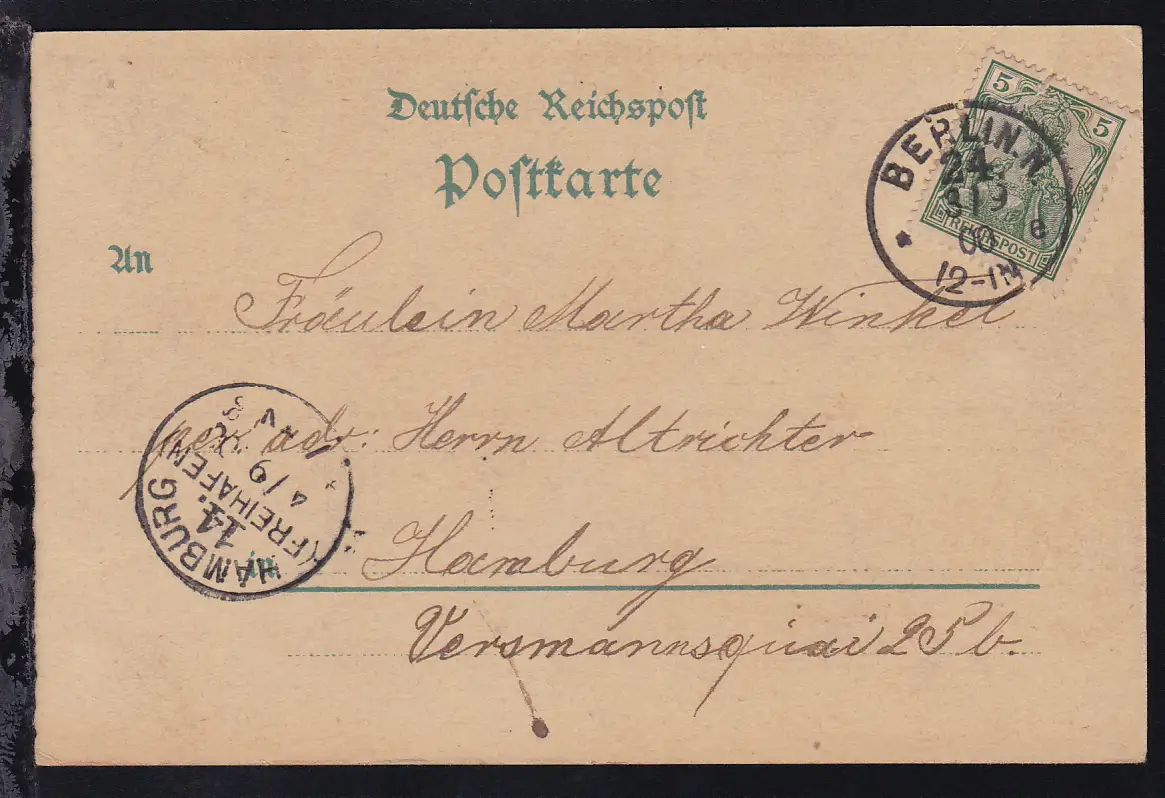 Deutsche Reichspost
Postkarte
5 5
REICHSPOST
BERLIN. N.
24
3 9
00
e
12-1N
An
Fräulein Martha Winkel
per adr: Herrn Altrichter
HAMBURG
14.
(FREIHAFEN)
4/9
V
in
Hamburg
Versmannsquai 25 b.